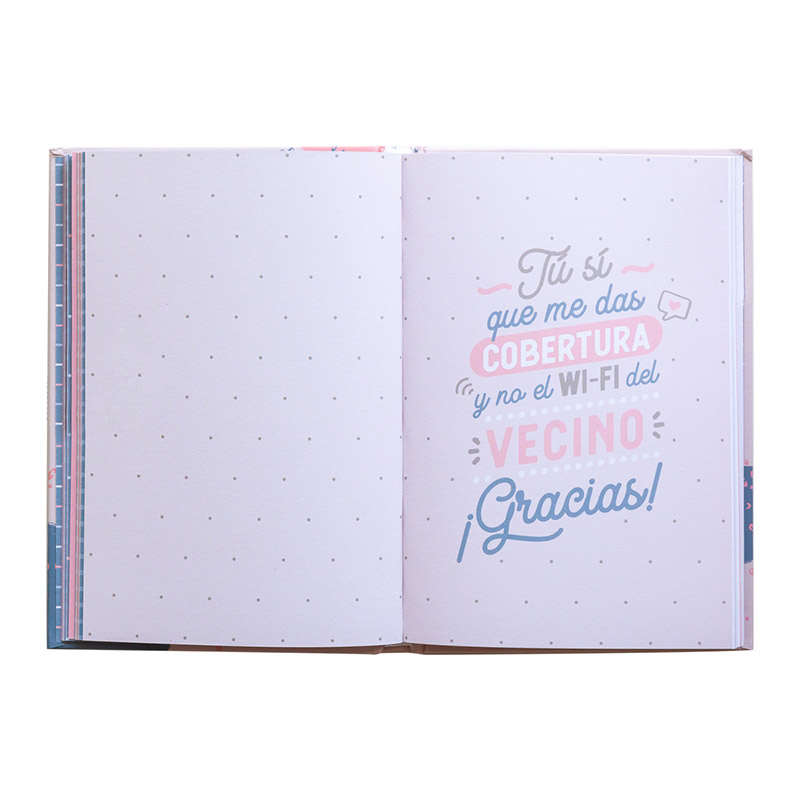 Tú sí
que me das
COBERTURA
y no el WI-FI del
VECINO
¡Gracias!